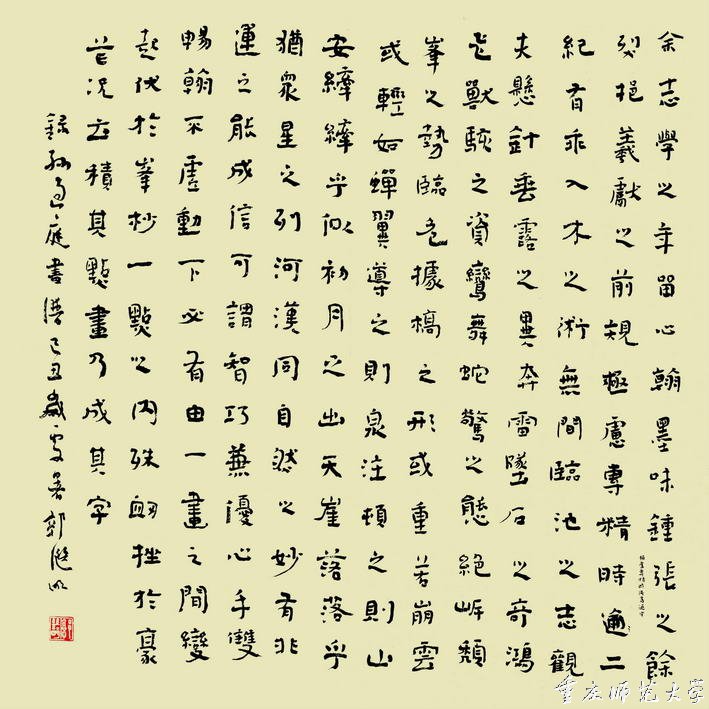 余志學之年留心翰墨味鍾張之餘
烈挹羲獻之前規極慮專精時逾二
紀有乖入木之術無間臨池之志觀
夫懸針垂露之異奔雷墜石之奇鴻
飛獸駭之資鸞舞蛇驚之態絕岸頹
峯之勢臨危據槁之形或重若崩雲
或輕如蟬翼導之則泉注頓之則山
安纖纖乎似初月之出天崖落落乎
猶衆星之列河漢同自然之妙有非
運之能成信可謂智巧兼優心手雙
暢翰不虛動下必有由一畫之間變
起伏於峯杪一點之內殊衄挫於豪
芒況云積其點畫乃成其字
錄孫過庭書譜己丑歲夏郭繼
重庆师范大學